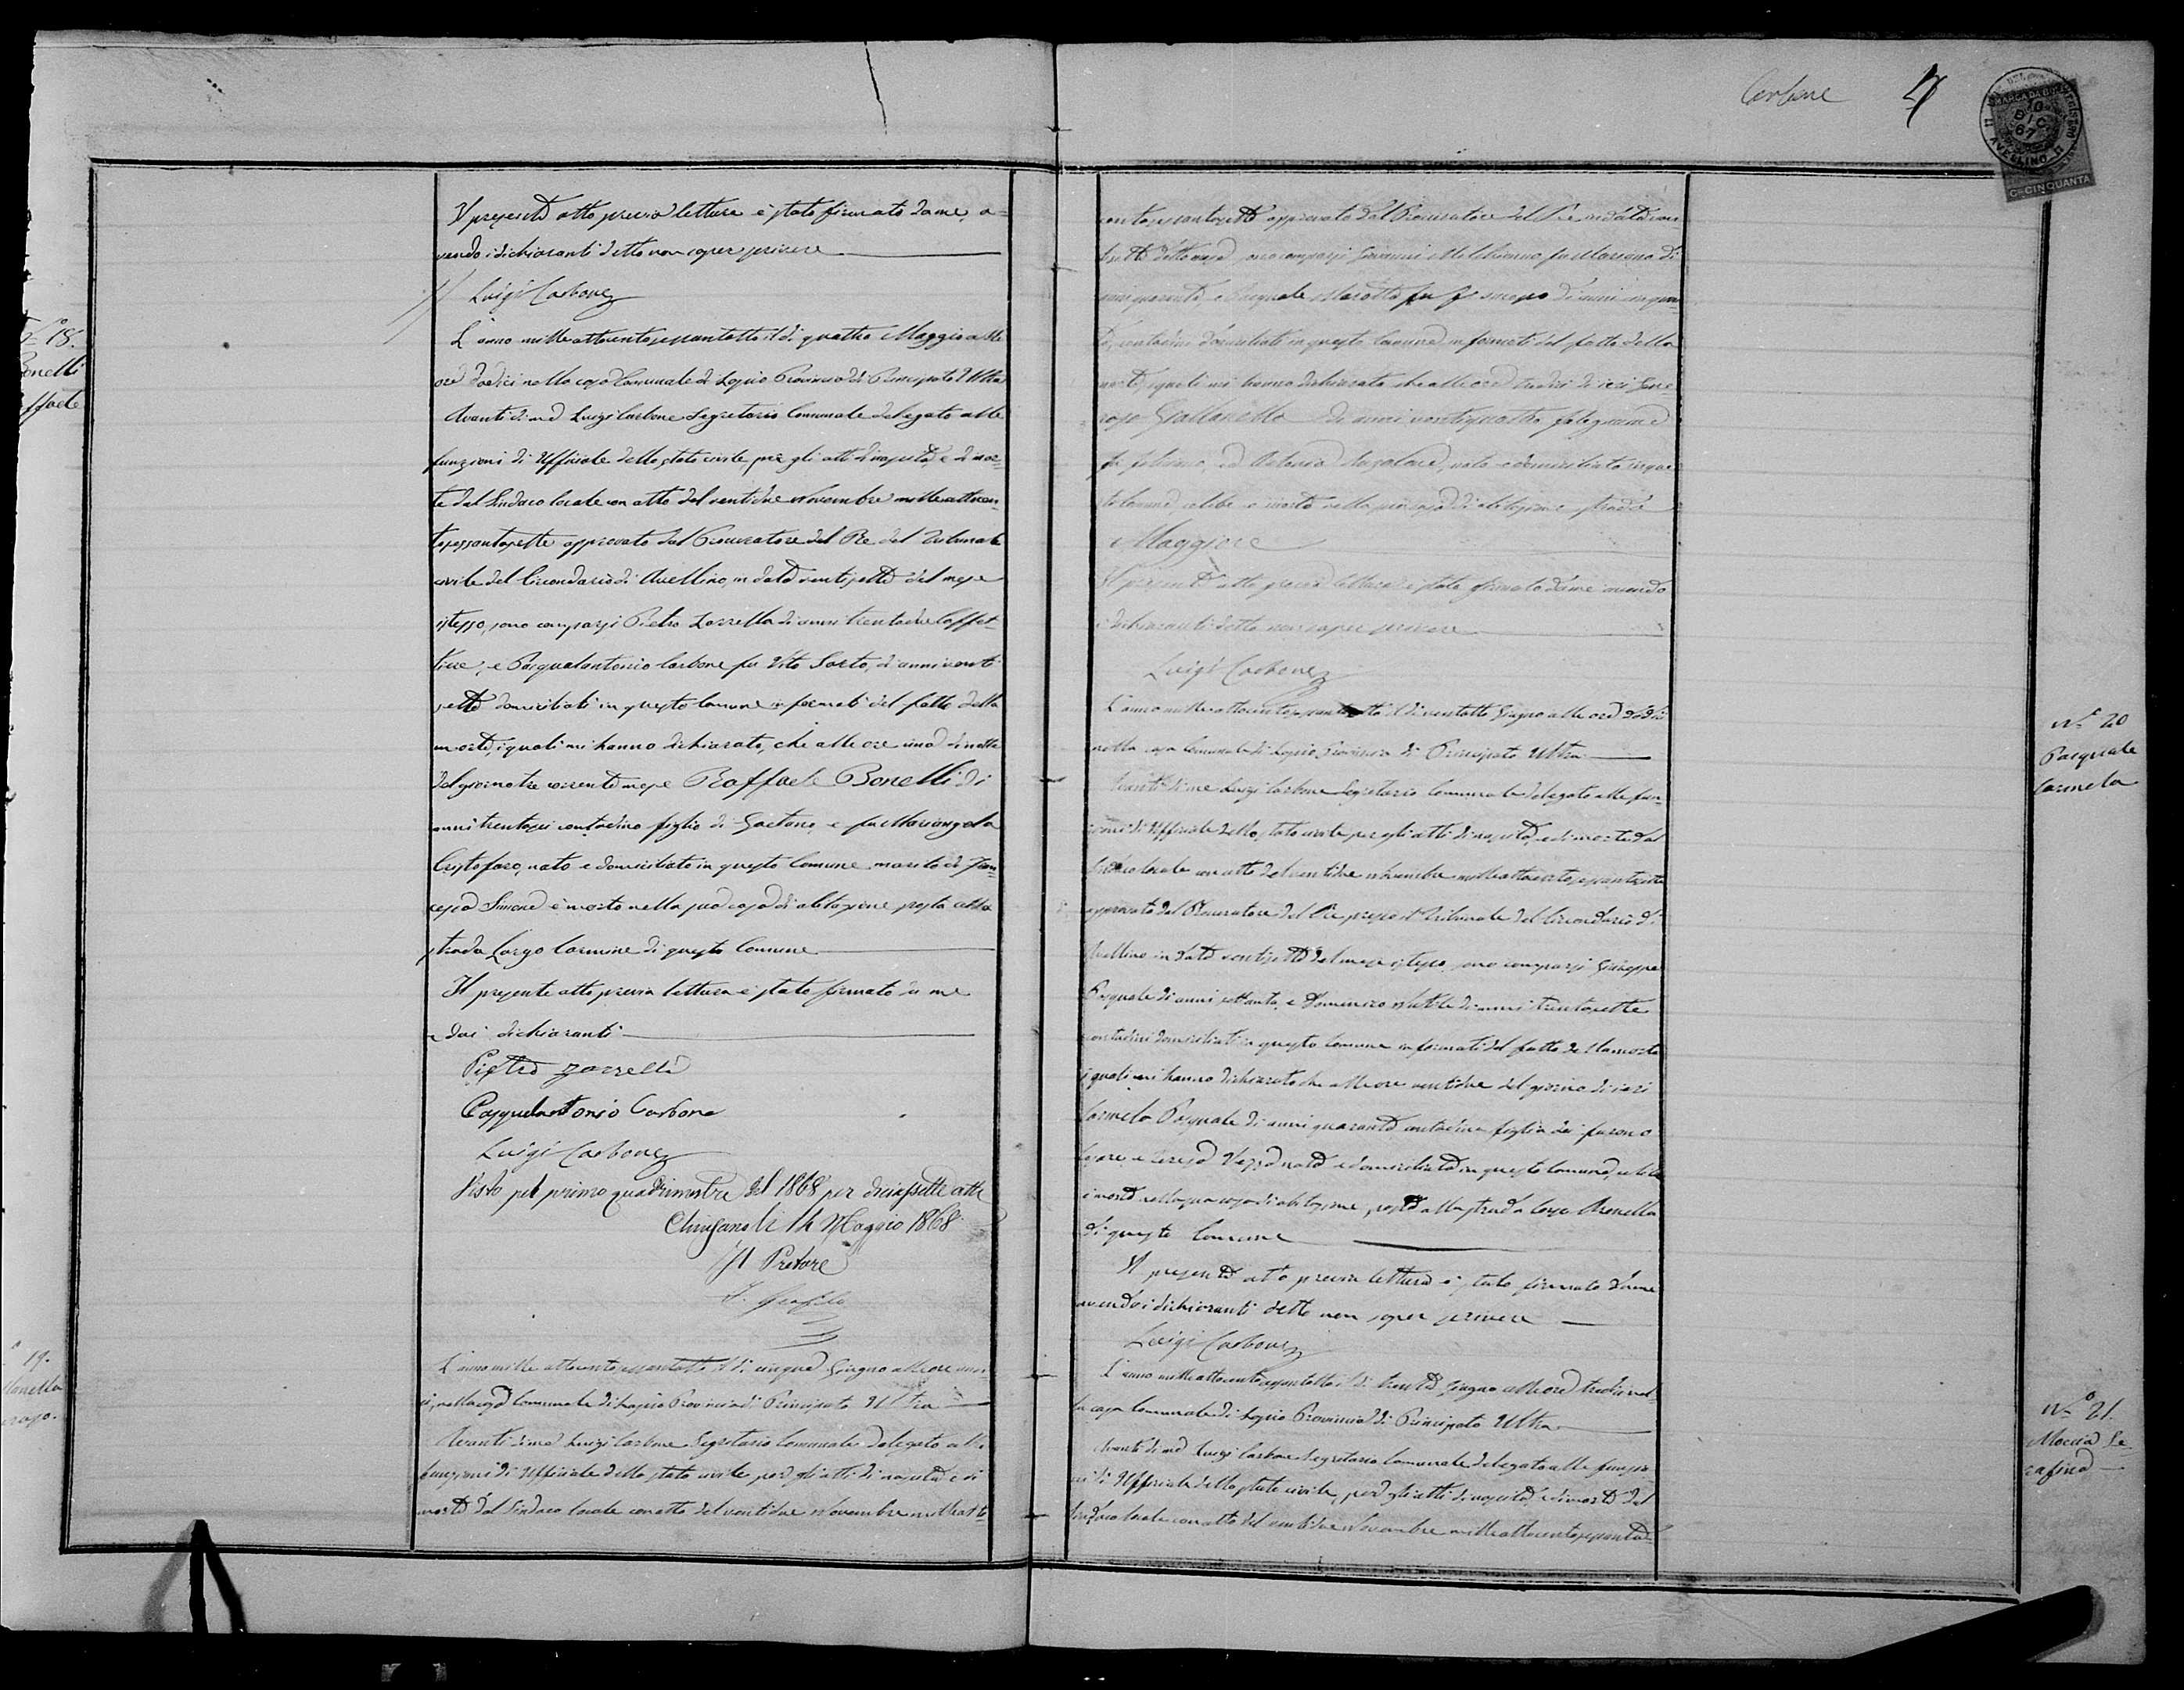 N.º 18.
Bonelli
Raffaele
Il presente atto previa lettura è stato firmato da me, a=
vendo i dichiaranti detto non saper scrivere
Luigi Carbone
L'anno mille ottocentosessantotto il dì quattro Maggio alle
ore dodici nella casa Comunale di Lapio Provincia di Principato Ultra
Avanti di me Luigi Carbone Segretario Comunale delegato alle
funzioni di Uffiziale dello stato civile per gli atti di nascita e di mor=
te dal Sindaco locale con atto del ventidue Novembre mille ottocen=
tosessantasette approvato dal Procuratore del Re del Tribunale
civile del Circondario di Avellino, in data ventisette del mese
istesso, sono comparsi Pietro Zarrella di anni trentadue Caffet=
tiere, e Pasqualantonio Carbone fu Vito Sarto, di anni venti
sette domiciliati in questo Comune informati del fatto della
morte, i quali mi hanno dichiarato, che alle ore una di notte
del giorno tre corrente mese Raffaele Bonelli di
anni trentasei contadino figlio di Gaetano, e fu Mariangela
Cristofaro, nato e domiciliato in questo Comune marito di Fran=
cesca Simone è morto nella sua casa di abitazione posta alla
strada Largo Carmine di questo Comune
Il presente atto previa lettura è stato firmato da me
e dai dichiaranti
Pietro Zarrella
Pasqualantonio Carbone
Luigi Carbone
Visto pel primo quadrimestre del 1868 per diciassette atti
Chiusano li 14 Maggio 1868
Il Pretore
19.
L'anno mille ottocentosessantotto il dì cinque Giugno alle ore
nella casa Comunale di Lapio Provincia di Principato Ultra
Avanti di me Luigi Carbone Segretario Comunale delegato alle
funzioni di Uffiziale dello stato civile per gli atti di nascita e di
morte dal Sindaco locale con atto del ventidue Novembre mille otto=
Carbone
MARCA DA BOLLO
10
DIC
67
AVELLINO
C. CINQUANTA
centosessantasette approvato dal Procuratore del Re in data ven=
tisette detto mese sono comparsi fu Mariano di
anni quaranta e Pasquale Marotta fu di anni cinquan=
ta, contadini domiciliati in questo Comune informati del fatto della
morte, i quali mi hanno dichiarato che alle ore tredici di ieri Gene=
roso Gallanella di anni ventiquattro falegname
fu ed Antonia nato e domiciliato in que=
sto Comune, celibe è morto nella sua casa di abitazione strada
Maggiore
Il presente atto previa lettura è stato firmato da me avendo
i dichiaranti detto non saper scrivere
Luigi Carbone
N.º 20
Pasquale
Carmela
L'anno mille ottocentosessantotto il dì ventotto Giugno alle ore dodici
nella casa Comunale di Lapio Provincia di Principato Ultra
Avanti di me Luigi Carbone Segretario Comunale delegato alle fun=
zioni di Uffiziale dello stato civile per gli atti di nascita, e di morte dal
Sindaco locale con atto del ventidue Novembre mille ottocentosessantasette
approvato dal Procuratore del Re presso il Tribunale del Circondario di
Avellino in data ventisette del mese istesso, sono comparsi Giuseppe
Pasquale di anni settanta, e Domenico di anni trentasette
contadini domiciliati in questo Comune informati del fatto della morte
i quali mi hanno dichiarato che alle ore ventidue del giorno di ieri
Carmela Pasquale di anni quaranta contadina figlia dei furono
Cesare, e Teresa nata e domiciliata in questo Comune, nubile
è morta nella sua casa di abitazione, posta alla strada Largo Arenella
di questo Comune
Il presente atto previa lettura è stato firmato da me
avendo i dichiaranti detto non saper scrivere
Luigi Carbone
N.º 21.
Moccia Se=
rafina
L'anno mille ottocentosessantotto il dì trenta Giugno alle ore tredici nel=
la casa Comunale di Lapio Provincia di Principato Ultra
Avanti di me Luigi Carbone Segretario Comunale delegato alle funzio=
ni di Uffiziale dello stato civile, per gli atti di nascita, e di morte dal
Sindaco locale con atto del ventidue Novembre mille ottocentosessanta=